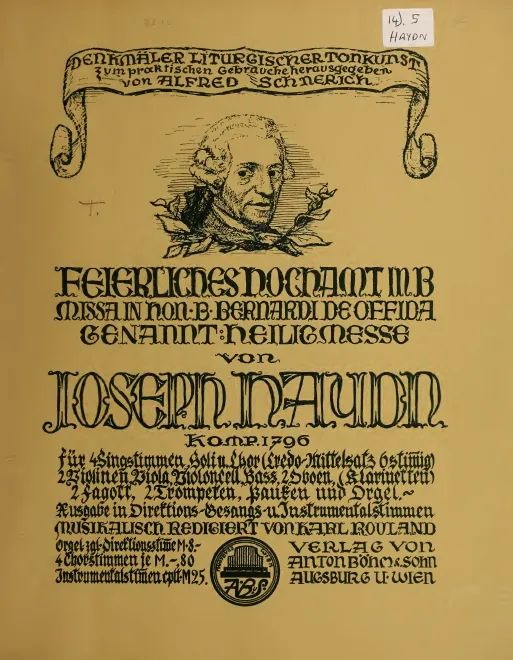 14). 5
HAYDN
DENKMÄLER LITURGISCHER TONKUNST
zum praktischen Gebrauche herausgegeben
von ALFRED SCHNERICH
T.
FEIERLICHES HOCHAMT IN B
MISSA IN HON. B. BERNARDI DE OFFIDA
GENANNT: HEILIGMESSE
VON
JOSEPH HAYDN
KOMP. 1796
für 4 Singstimmen, Soli u. Chor (Credo-Mittelsatz 6stimmig)
2 Violinen, Viola, Violoncell, Bass, 2 Oboen, (Klarinetten)
2 Fagott, 2 Trompeten, Pauken und Orgel.~
Ausgabe in Direktions-Gesangs-u. Instrumentalstimmen
MUSIKALISCH REDIGIERT VON KARL ROULAND
Orgel zgl. Direktionsstimme M. 8.-
4 Chorstimmen je M. -, 80
Instrumentalstimmen cplt. M 25.
A.B.&S.
VERLAG VON
ANTON BÖHM & SOHN
AUGSBURG U. WIEN